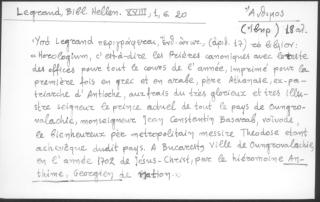 Legrand, Bibl. Hellen. XVIII, 1, σ. 20
Ἄνθιμος
(Ἰβηρ) 18 αἰ.
Ὑπὸ Legrand περιγράφεται, (ἀριθ. 17) τὸ βιβλίον:
« Horologium, c'est-à-dire les Prières canoniques avec le texte
des offices pour tout le cours de l'année, imprimé pour la
première fois en grec et en arabe, père Athanase, ex-pa-
triarche d'Antioche, aux frais du très glorieux et très illu-
stre seigneur le prince actuel de tout le pays de Oungro-
valachie, monseigneur Jean Constantin Basarab, voïvode,
le bienheureux père metropolitain messire Théodose étant
archevêque dudit pays. A Bucarest ville de Oungrovalachie,
en l'année 1702 de Jésus-Christ, par le hiéromoine An-
thime, Géorgien de nation.»